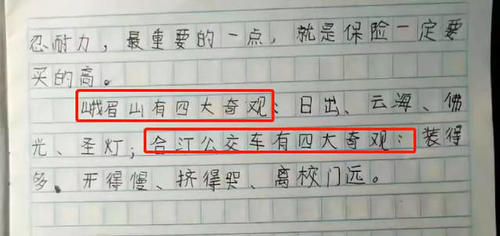 忍耐力，最重要的一点，就是保险一定要
买的高。
峨眉山有四大奇观：日出、云海、佛
光、圣灯；合江公交车有四大奇观：装得
多、开得慢、挤得哭、离校门远。